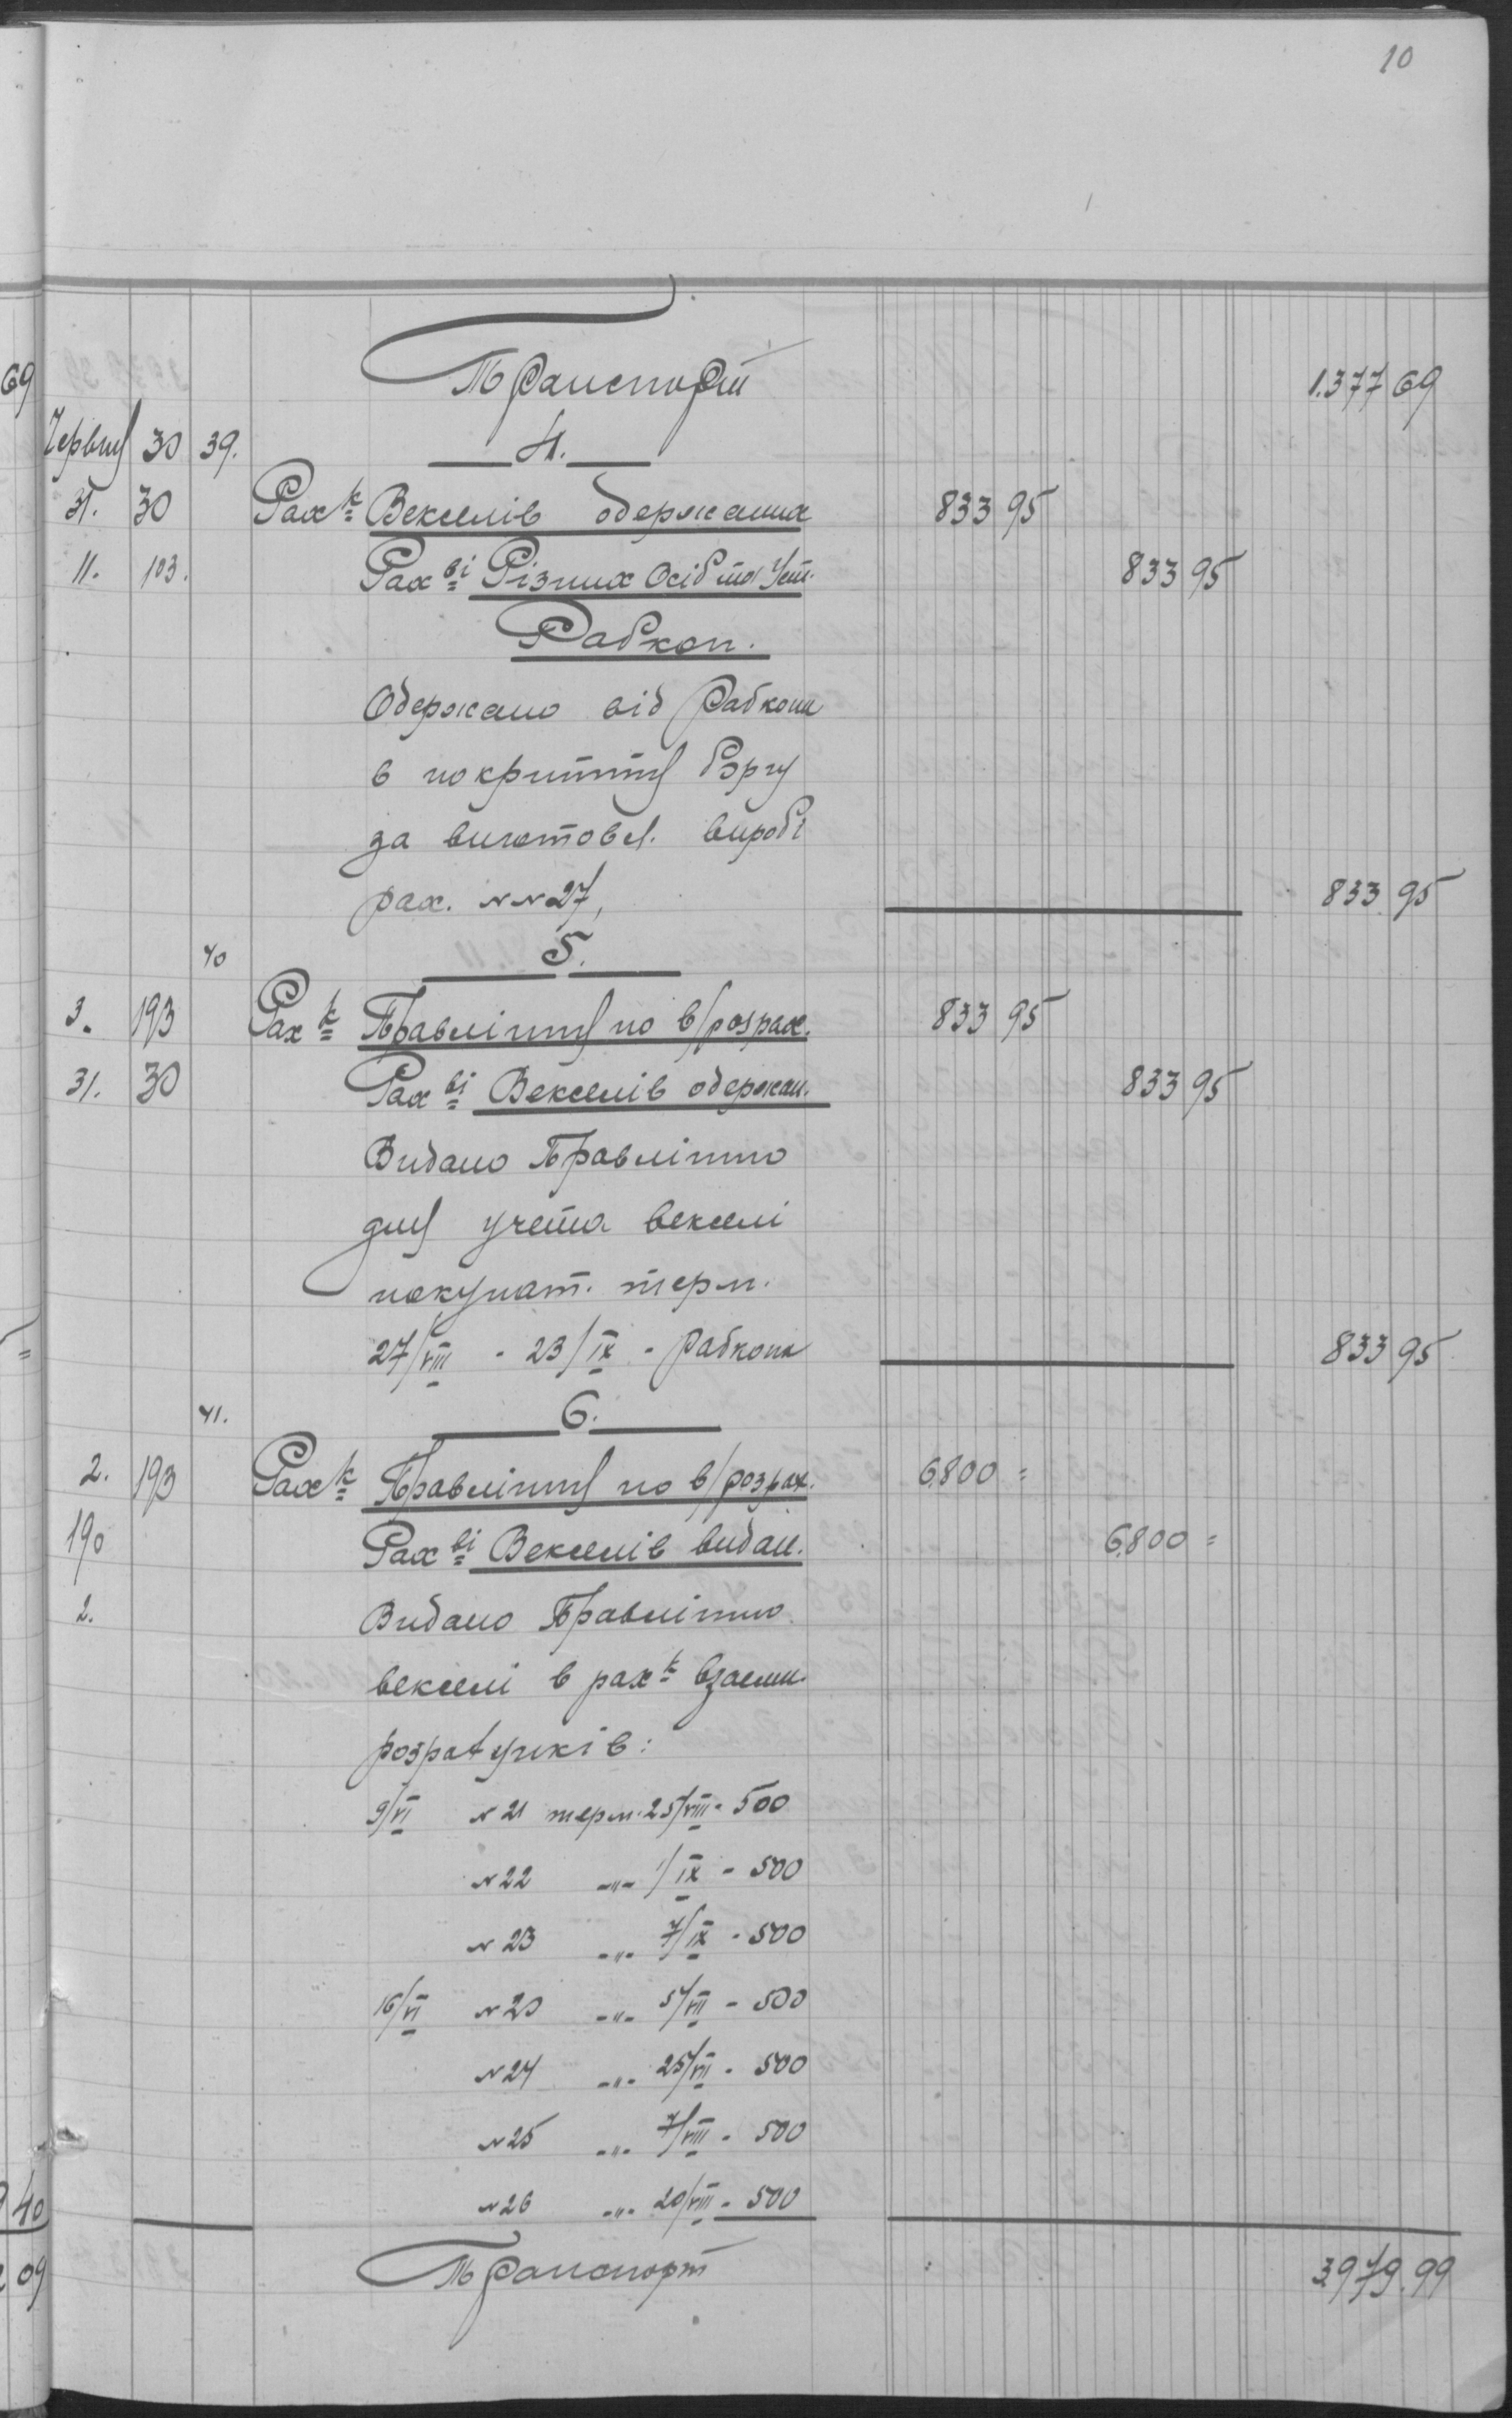 10
Транспорт 1.377 69
69
Червня 30 39. 4.
31. 30 Рах к Векселів одержаних 833 95
11. 103. Рах ві Різних Осіб та Уст. 833 95
Рабкоп.
Одержано від Рабкопа
в покриття боргу
за виготовл. вироби
рах. NN 27, 833 95
40 5.
3. 193 Рах к Правління по в/розрах. 833 95
31. 30 Рах ві Векселів одержан. 833 95
Видано Правлінню
для учета векселі
покупат. терм.
27/VIII - 23/IX - Рабкопа 833 95
41. 6.
2. 193 Рах к Правління по в/розрах. 6.800 =
190 Рах ві Векселів видан. 6.800 =
2. Видано Правлінню
векселі в рах к взаємн.
розрахунків:
9/VI N 21 терм. 25/VIII - 500
N 22 -"- 1/IX - 500
N 23 -"- 7/IX - 500
16/VI N 20 -"- 5/VII - 500
N 24 -"- 25/VII - 500
N 25 -"- 7/VIII - 500
40 N 26 -"- 20/VIII - 500
09 Транспорт 3.979.99